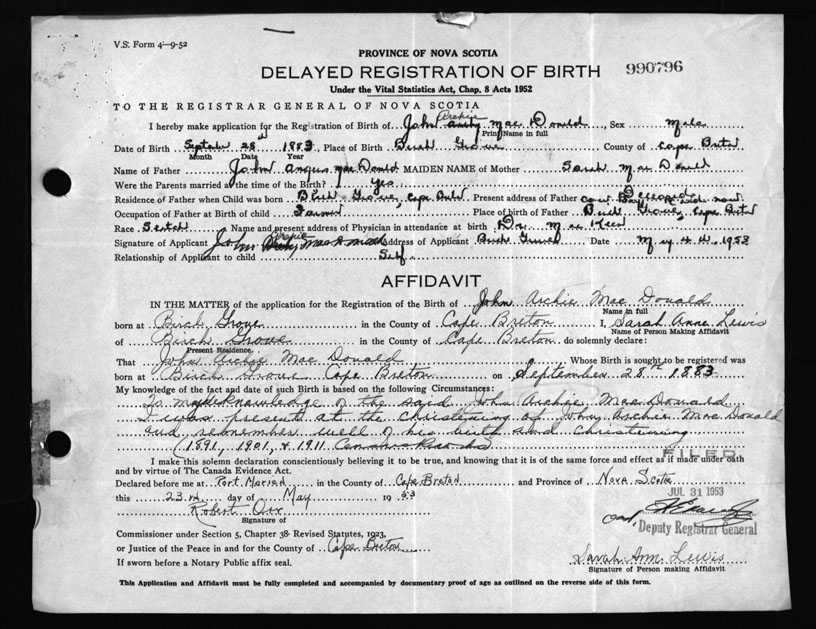 V.S. Form 4-9-52
PROVINCE OF NOVA SCOTIA
DELAYED REGISTRATION OF BIRTH 990796
Under the Vital Statistics Act, Chap. 8 Acts 1952
TO THE REGISTRAR GENERAL OF NOVA SCOTIA
I hereby make application for the Registration of Birth of John Archie Mac Donald Sex Male
Print Name in full
Date of Birth 28 1883 Place of Birth Birch Grove County of Cape Breton
Month Date Year
Name of Father John Angus Mac Donald MAIDEN NAME of Mother Sarah Mac Donald
Were the Parents married at the time of the Birth? Yes
Residence of Father when Child was born Birch Grove, Cape Breton Present address of Father
Occupation of Father at Birth of child Farmer Place of birth of Father Birch Grove, Cape Breton
Race Scotch Name and present address of Physician in attendance at birth Dr.
Signature of Applicant John Archie Address of Applicant Birch Grove Date May 4th, 1953
Relationship of Applicant to child Self
AFFIDAVIT
IN THE MATTER of the application for the Registration of the Birth of John Archie Mac Donald
Name in full
born at Birch Grove in the County of Cape Breton I, Sarah Anne Lewis
Name of Person Making Affidavit
of Birch Grove in the County of Cape Breton do solemnly declare:
Present Residence
That John Archie Mac Donald Whose Birth is sought to be registered was
born at Birch Grove Cape Breton on September 28th 1883
My knowledge of the fact and date of such Birth is based on the following Circumstances:
To my knowledge of the said John Archie MacDonald
I was present at the christening of John Archie Mac Donald
and remember well of his birth and Christening
(1891, 1901, & 1911 Census Records)
FILED
I make this solemn declaration conscientiously believing it to be true, and knowing that it is of the same force and effect as if made under oath
and by virtue of The Canada Evidence Act.
Declared before me at Port Morien in the County of Cape Breton and Province of Nova Scotia
JUL 31 1953
this 23rd day of May 1953
Robert Orr
Signature of
Deputy Registrar General
Commissioner under Section 5, Chapter 38 Revised Statutes, 1923,
or Justice of the Peace in and for the County of Cape Breton
Sarah Ann Lewis
If sworn before a Notary Public affix seal.
Signature of Person making Affidavit
This Application and Affidavit must be fully completed and accompanied by documentary proof of age as outlined on the reverse side of this form.